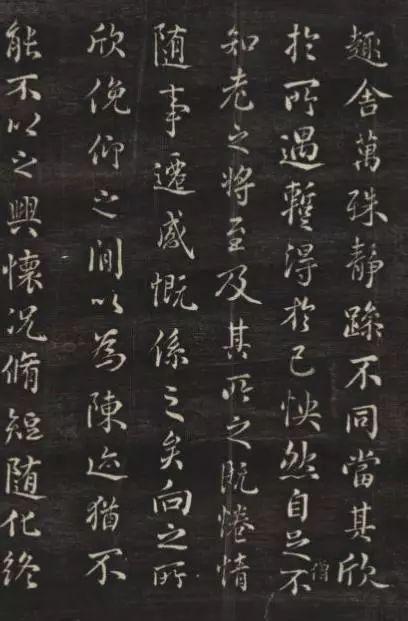 趣舍萬殊靜躁不同當其欣
僧
於所遇蹔得於己怏然自足不
知老之將至及其所之既惓情
随事遷感慨係之矣向之所
欣俛仰之閒以為陳迹猶不
能不以之興懷況脩短随化終